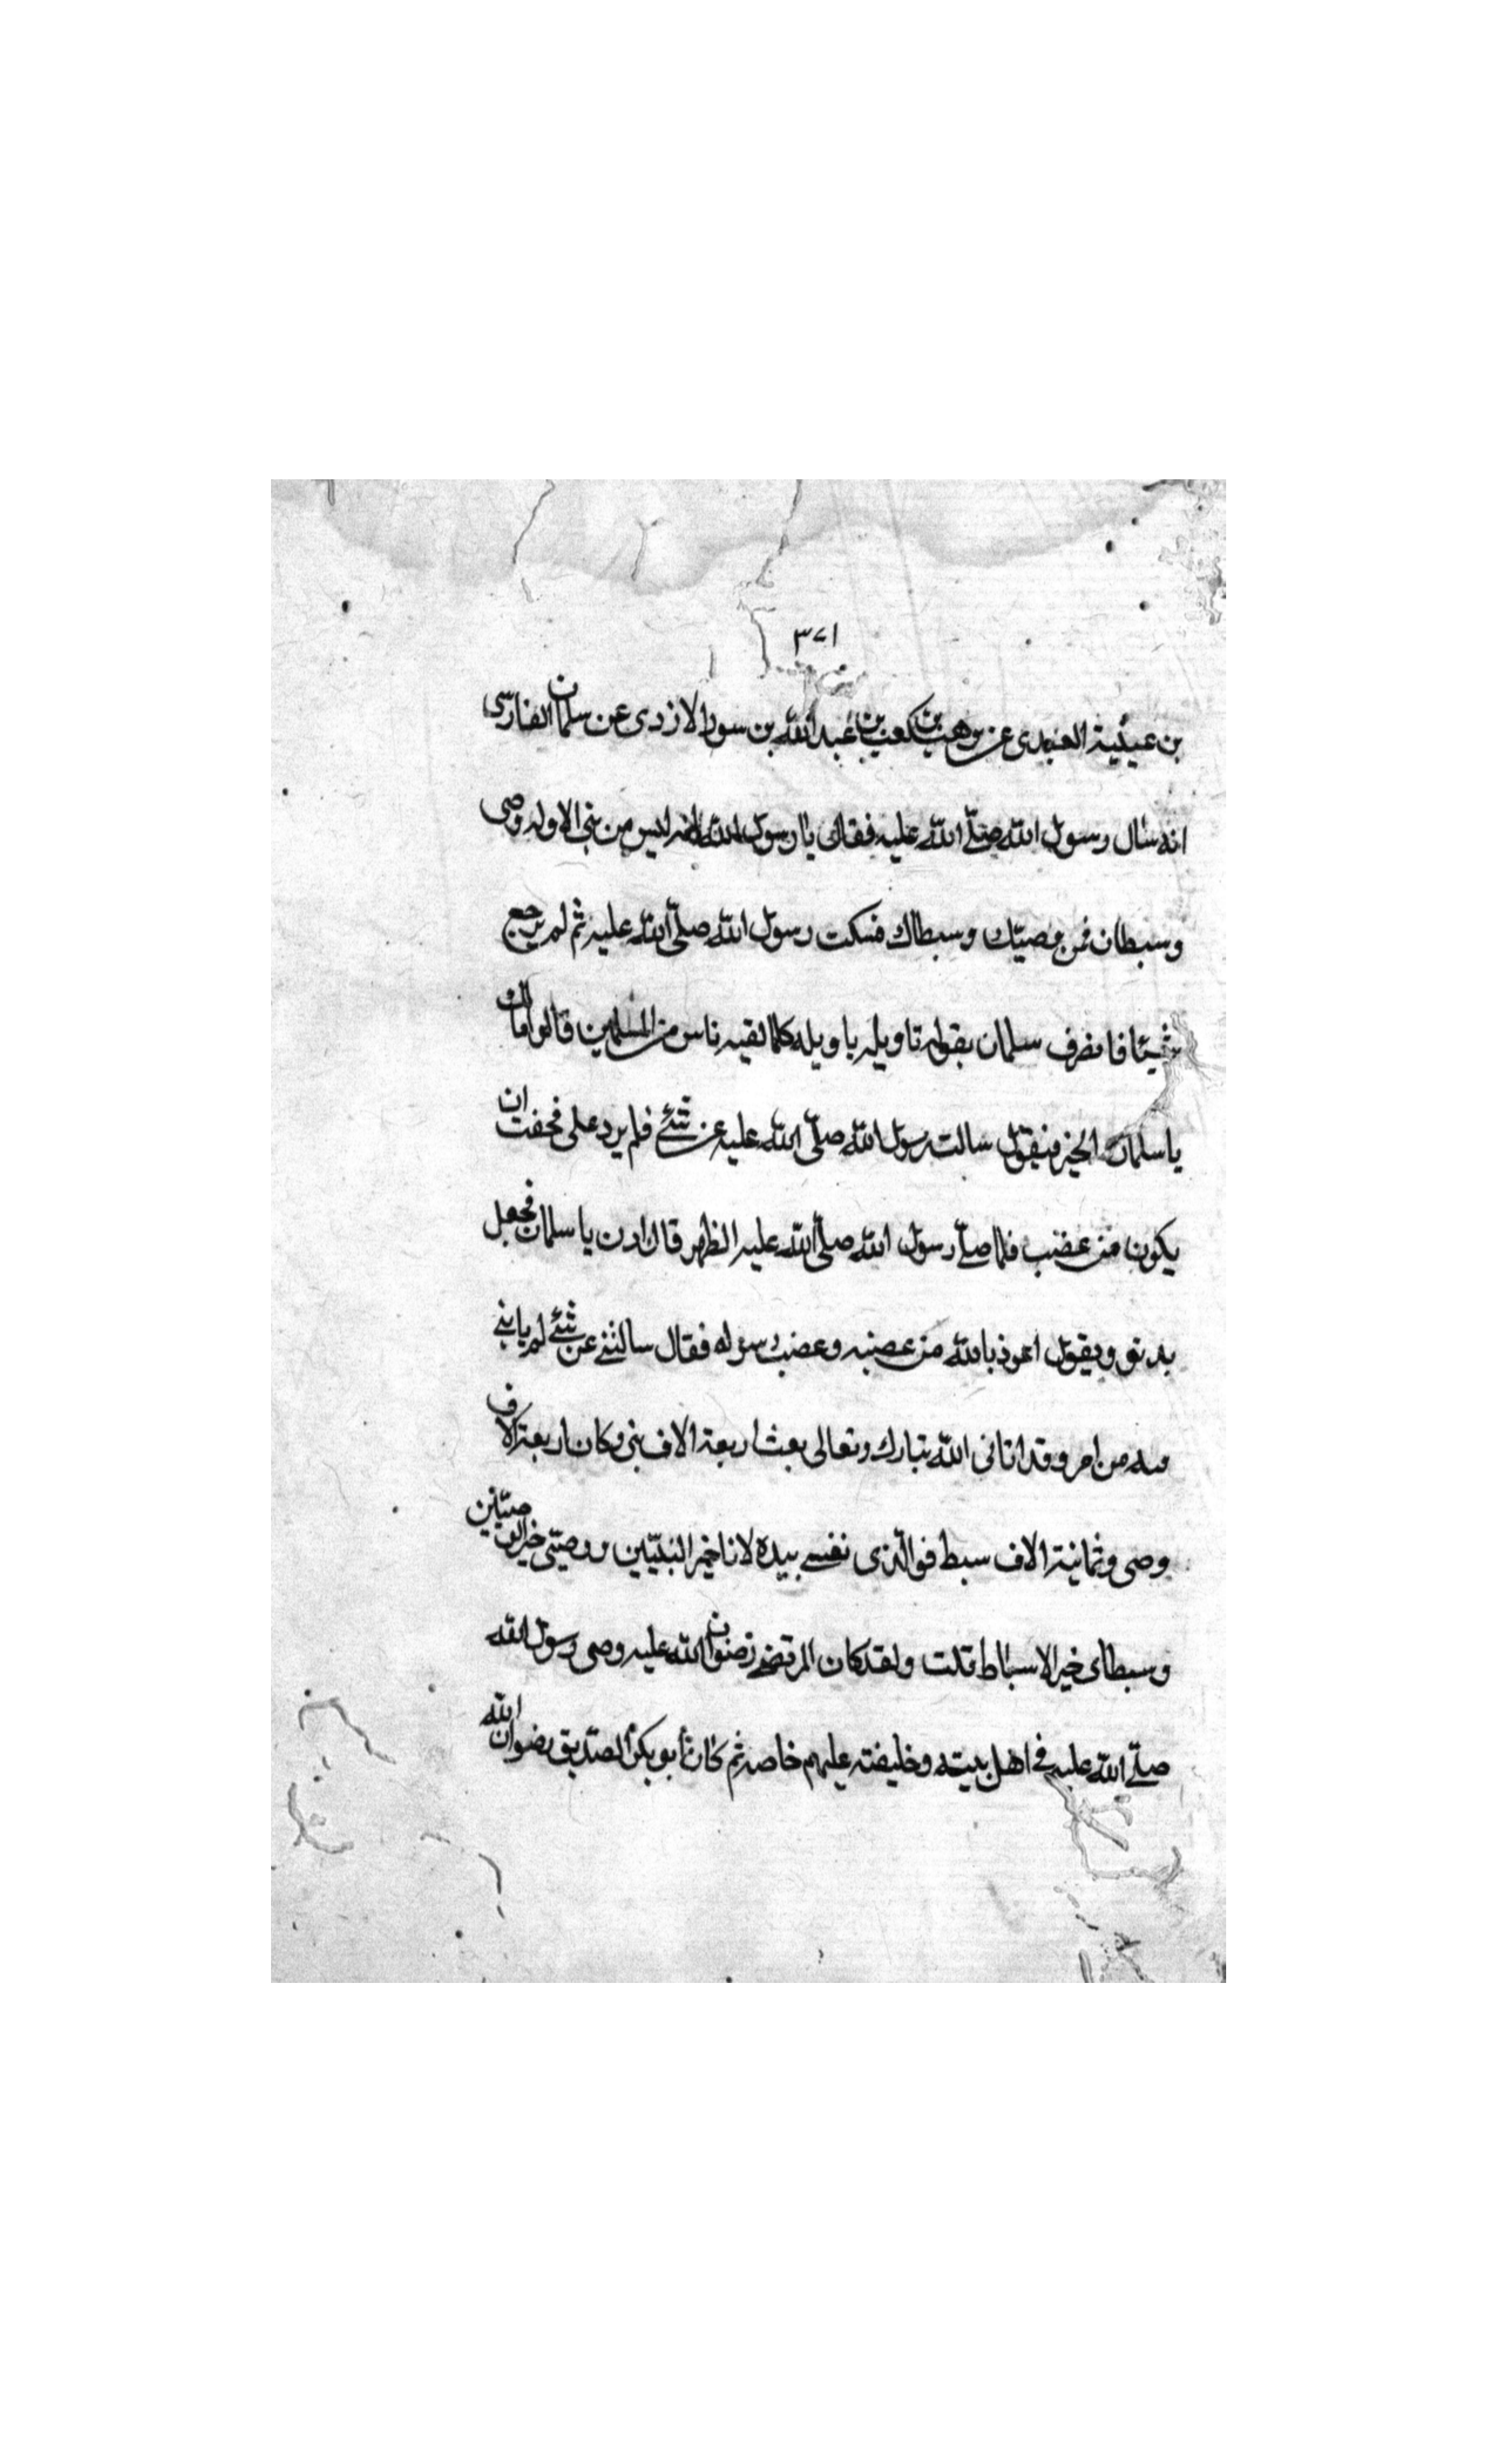 ٣٧١
بن عيينة العبدى عن وهب بن كعب بن عبد الله بن سور الازدى عن سلمان الفارسى
انه سأل رسول الله صلّى الله عليه فقال يا رسول الله انه ليس من نبى الا وله وصى
وسبطان فمن وصيّك وسبطاك فسكت رسول الله صلّى الله عليه ثم لم يرجع
شيئا فانصرف سلمان يقول تاويله ياويله كلما لقيه ناس من المسلمين قالوا مالك
يا سلمان الخير فيقول سالت رسول الله صلّى الله عليه عن شئ فلم يرد على فخفت ان
يكون من غضب فلما صلّى رسول الله صلّى الله عليه الظهر قال ادن يا سلمان فجعل
يدنو ويقول اعوذ بالله من غضبه وغضب رسوله فقال سالتنى عن شئ لم ياتنى
فيه من امر وقد اتانى الله تبارك وتعالى بعث اربعة الاف نبى وكان اربعة الاف
وصى وثمانية الاف سبط فوالّذى نفسى بيده لانا خير النبيّين ووصيّى خير الوصيّين
وسبطاى خير الاسباط قلت ولقد كان المرتضى رضوان الله عليه وصى رسول الله
صلّى الله عليه فى اهل بيته وخليفته عليهم خاصه ثم كان أبو بكر الصدّيق رضوان الله